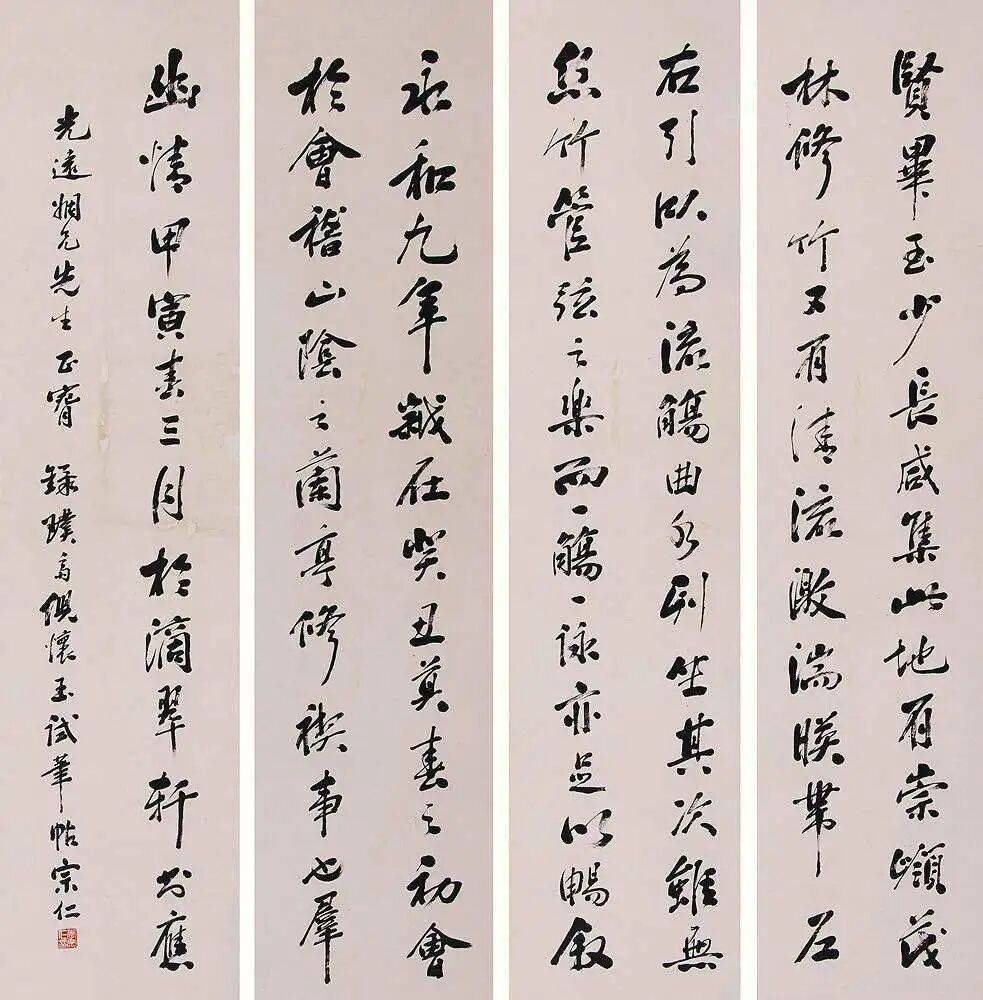 賢畢至少長咸集此地有崇嶺茂
林修竹又有清流激湍暎帶左
右引以為流觴曲水列坐其次雖無
絲竹管弦之樂而一觴一詠亦足以暢敘
永和九年歲在癸丑莫春之初會
於會稽山陰之蘭亭修禊事也羣
幽情甲寅春三月於滴翠軒書應
光遠姻兄先生正 錄 懷玉試筆帖宗仁